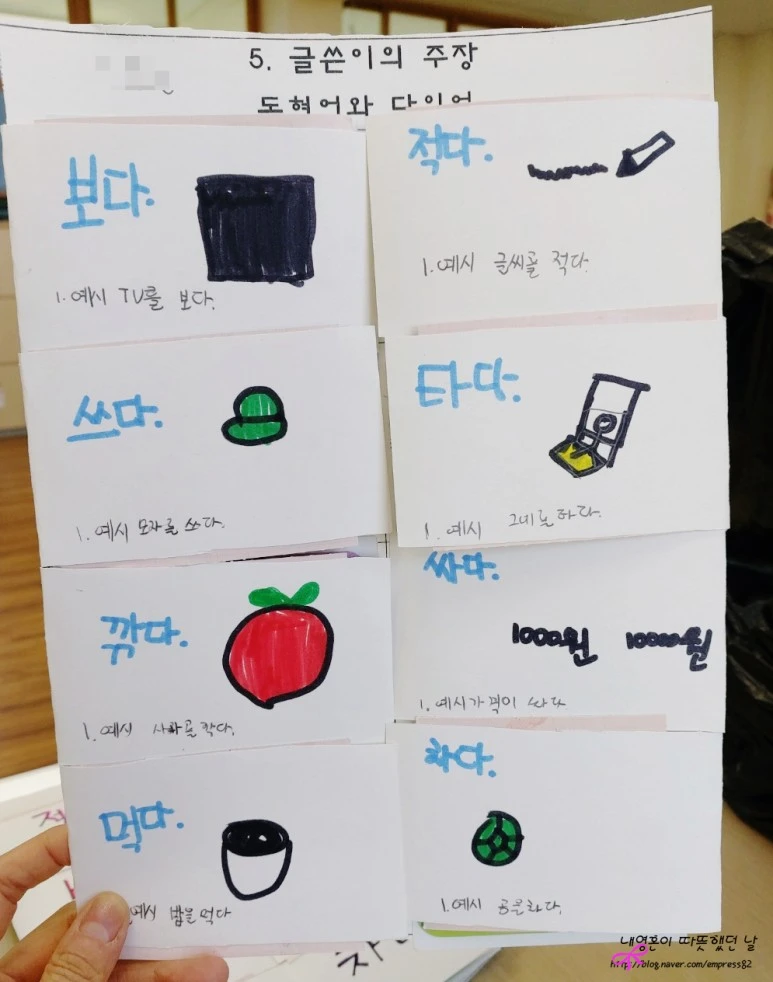 5. 글쓴이의 주장
동형어와 다의어
보다.
1. 예시 TV를 보다.
적다.
1. 예시 글씨를 적다.
쓰다.
1. 예시 모자를 쓰다.
타다.
1. 예시 그네를 타다.
깎다.
1. 예시 사과를 깍다.
싸다.
1000원 10000원
1. 예시 가격이 싸다
먹다.
예시 밥을 먹다
차다.
1. 예시 공을 차다.
내영혼이 따뜻했던 날
http://blog.naver.com/empress82